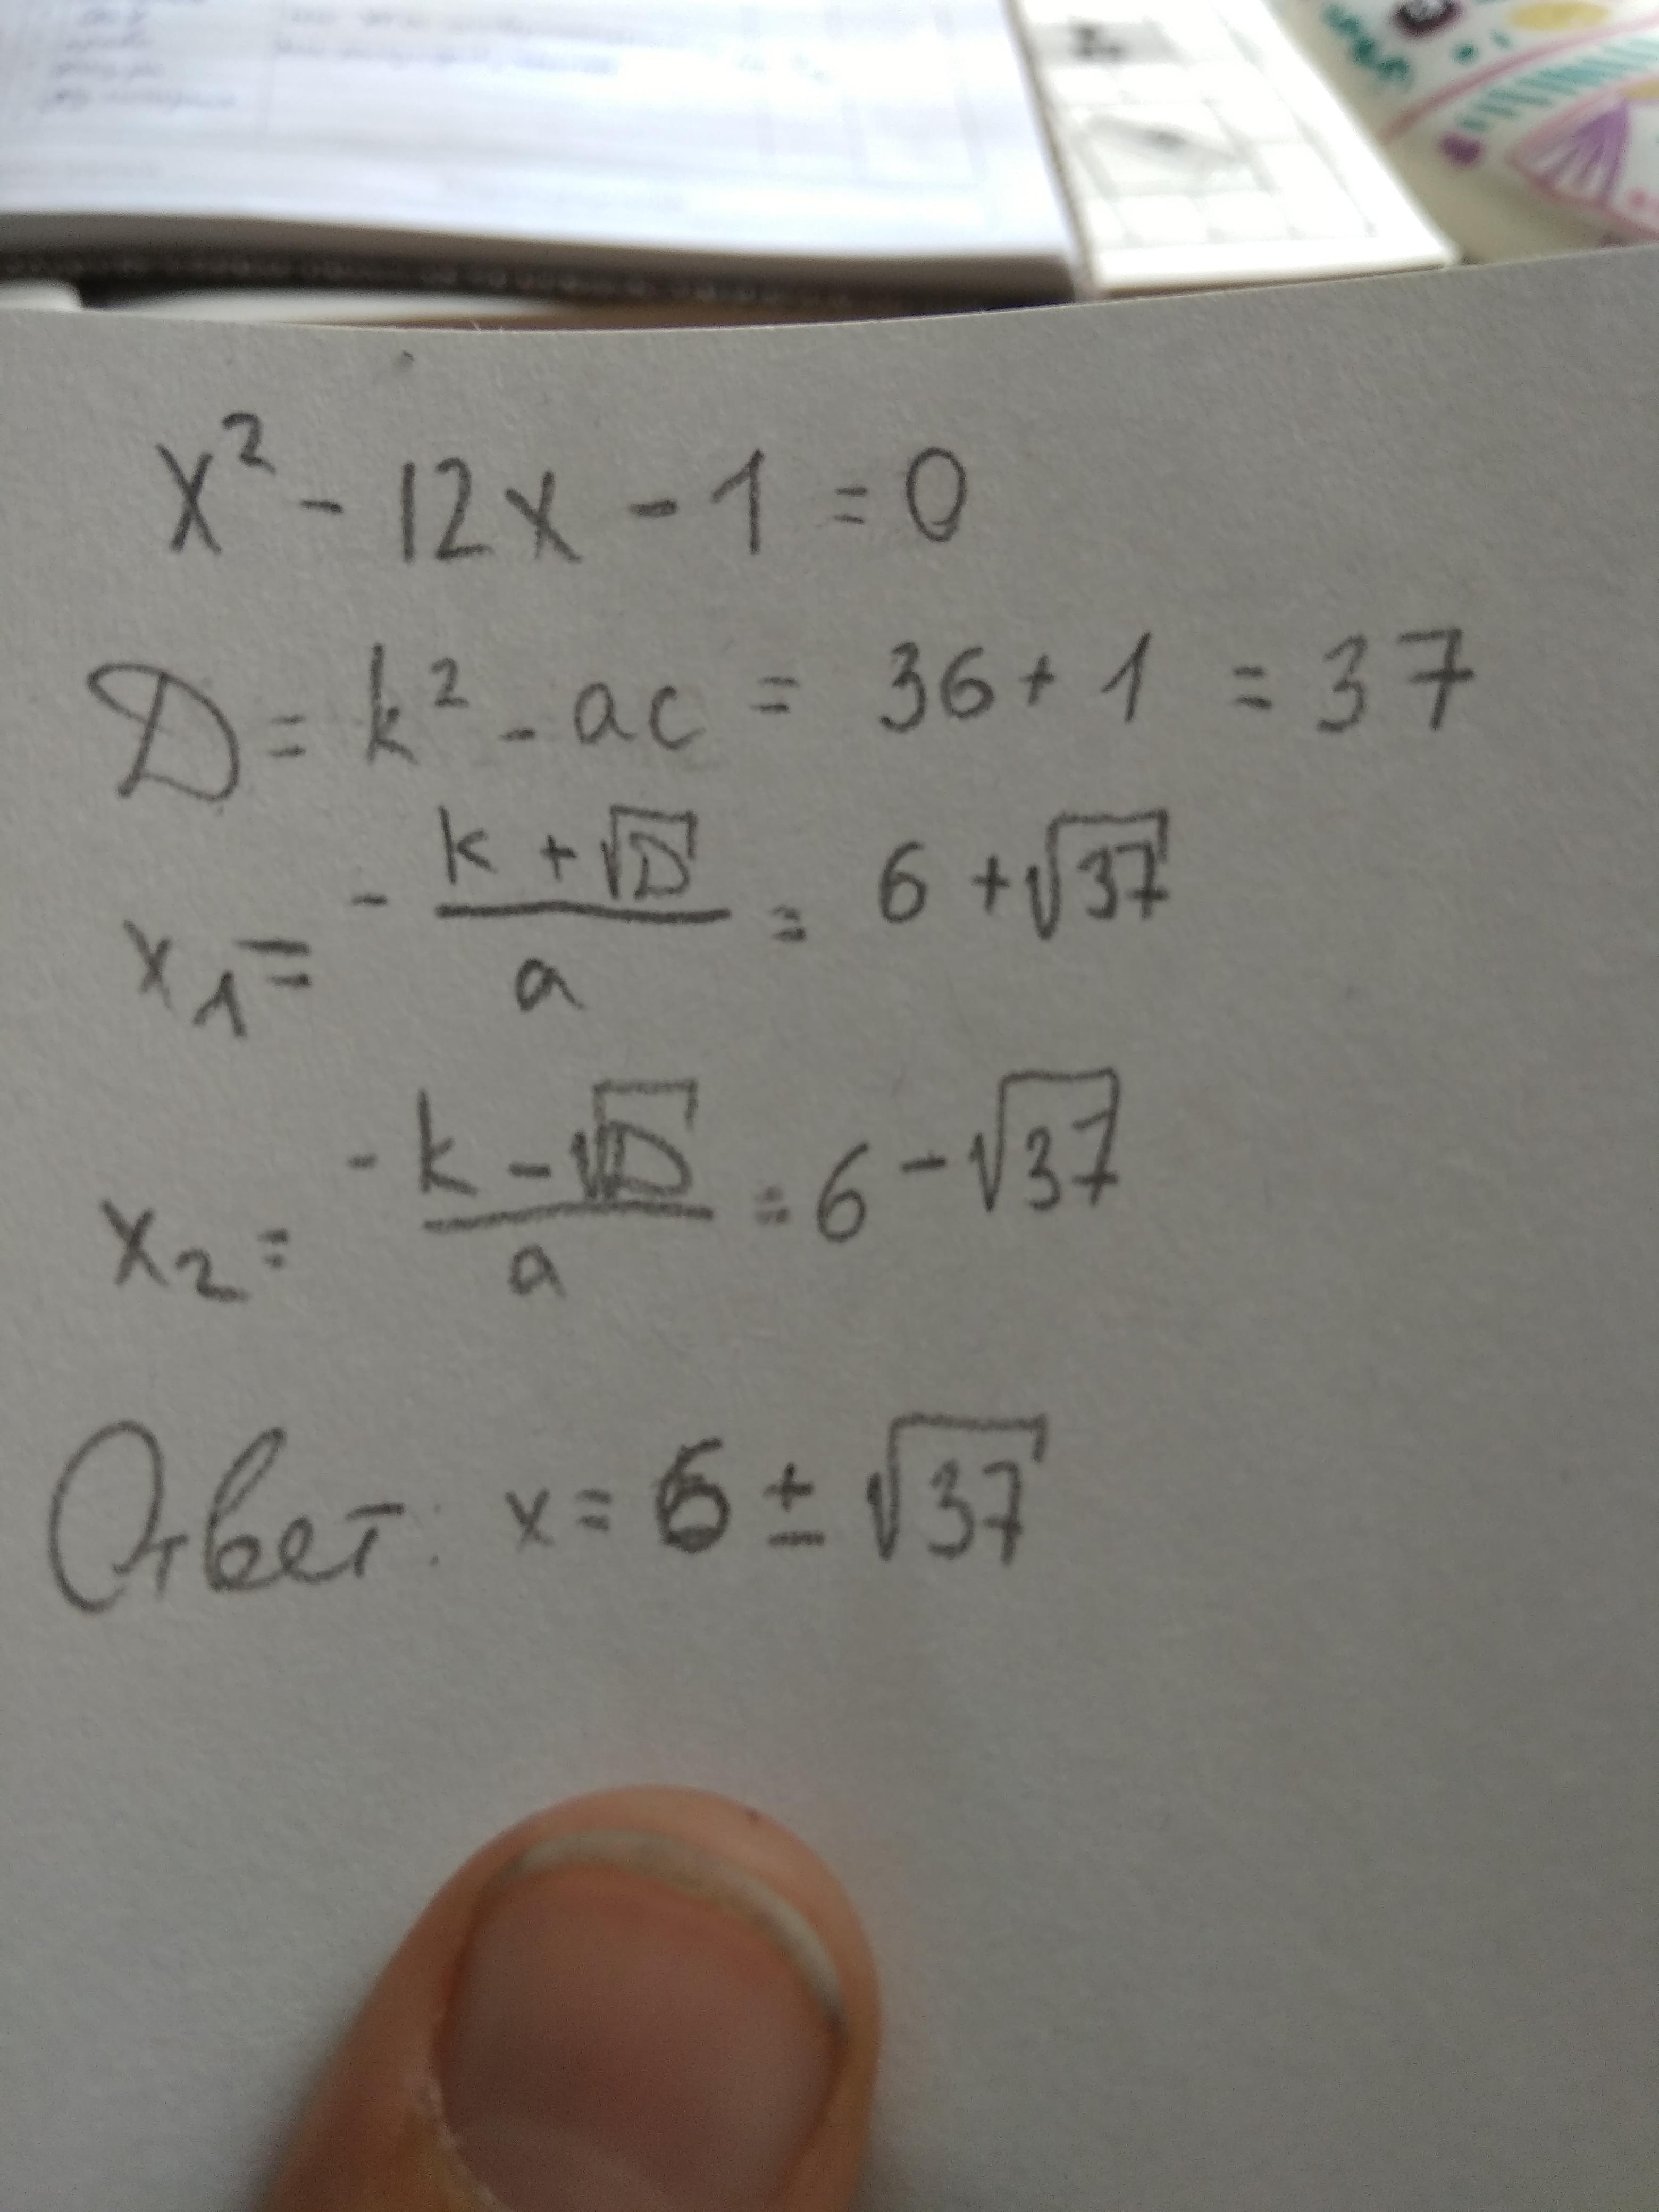 x² - 12x - 1 = 0
D = k² - ac = 36 + 1 = 37
x₁ = -k + √D / a = 6 + √37
x₂ = -k - √D / a = 6 - √37
Ответ: x = 6 ± √37